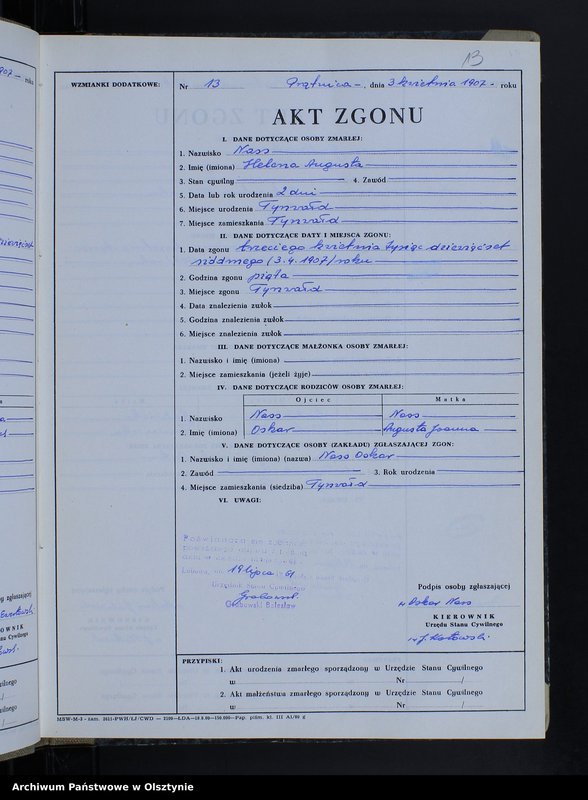 13
WZMIANKI DODATKOWE:
Nr 13 Prątnica, dnia 3 kwietnia 1907 roku
AKT ZGONU
I. DANE DOTYCZĄCE OSOBY ZMARŁEJ:
1. Nazwisko Nass
2. Imię (imiona) Helena Augusta
3. Stan cywilny 4. Zawód
5. Data lub rok urodzenia 2 dni
6. Miejsce urodzenia Tynwałd
7. Miejsce zamieszkania Tynwałd
II. DANE DOTYCZĄCE DATY I MIEJSCA ZGONU:
1. Data zgonu trzeciego kwietnia tysiąc dziewięćset
siódmego (3.4.1907) roku
2. Godzina zgonu piąta
3. Miejsce zgonu Tynwałd
4. Data znalezienia zwłok
5. Godzina znalezienia zwłok
6. Miejsce znalezienia zwłok
III. DANE DOTYCZĄCE MAŁŻONKA OSOBY ZMARŁEJ:
1. Nazwisko i imię (imiona)
2. Miejsce zamieszkania (jeżeli żyje)
IV. DANE DOTYCZĄCE RODZICÓW OSOBY ZMARŁEJ:
Ojciec Matka
1. Nazwisko Nass Nass
2. Imię (imiona) Oskar Augusta Joanna
V. DANE DOTYCZĄCE OSOBY (ZAKŁADU) ZGŁASZAJĄCEJ ZGON:
1. Nazwisko i imię (imiona) (nazwa) Nass Oskar
2. Zawód 3. Rok urodzenia
4. Miejsce zamieszkania (siedziba) Tynwałd
VI. UWAGI:
19 lipca 61
Urzędnik Stanu Cywilnego
Grabowski
Grabowski Bolesław
Podpis osoby zgłaszającej
Oskar Nass
KIEROWNIK
Urzędu Stanu Cywilnego
PRZYPISKI:
1. Akt urodzenia zmarłego sporządzony w Urzędzie Stanu Cywilnego
w Nr /
2. Akt małżeństwa zmarłego sporządzony w Urzędzie Stanu Cywilnego
w Nr /
Archiwum Państwowe w Olsztynie